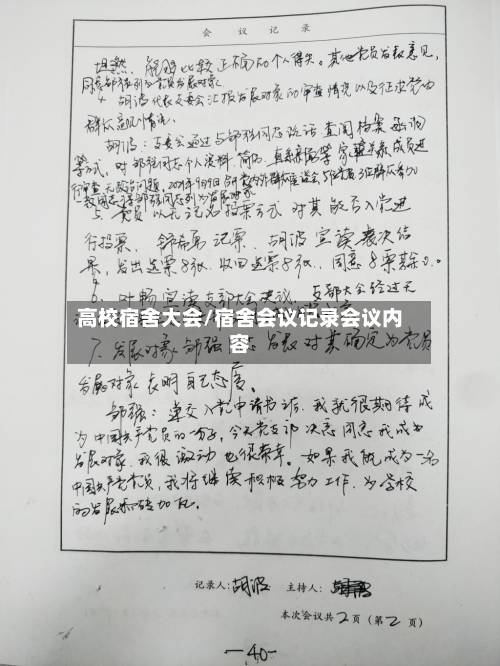 会 议 记 录
坦然、能够比较正确的个人得失。其他党员发表意见,
同意邹强列为党员发展对象
4、胡波代表支委会汇报发展对象的审查情况以及征求党内
群众意见情况。
胡波:支委会通过与邹强同志谈话 查阅档案 函询
等方式,对邹强同志个人资料、简历、直系亲属等家庭关系成员进
行审查,无政治问题,
5、党员以无记名投票方式 对其能否入党进
行投票, 记票, 胡波宣读表决结
果,发出选票8张、收回选票8张,同意8票
6、叶畅宣读支部大会决议, 支部大会经过无
高校宿舍大会/宿舍会议记录会议内
容
7、发展对象邹强同志发表对其确定为党员
发展对象表明自己态度。
邹强:递交入党申请书后,我就很期待成
为中国共产党员的一份子,今天党支部决定同志我成为
发展对象,我很激动也很荣幸。如果我能成为一名
中国共产党党员,我将继续积极努力工作,为学校
的发展添砖加瓦。
记录人:胡波 主持人:
本次会议共2页(第2页)
—40—